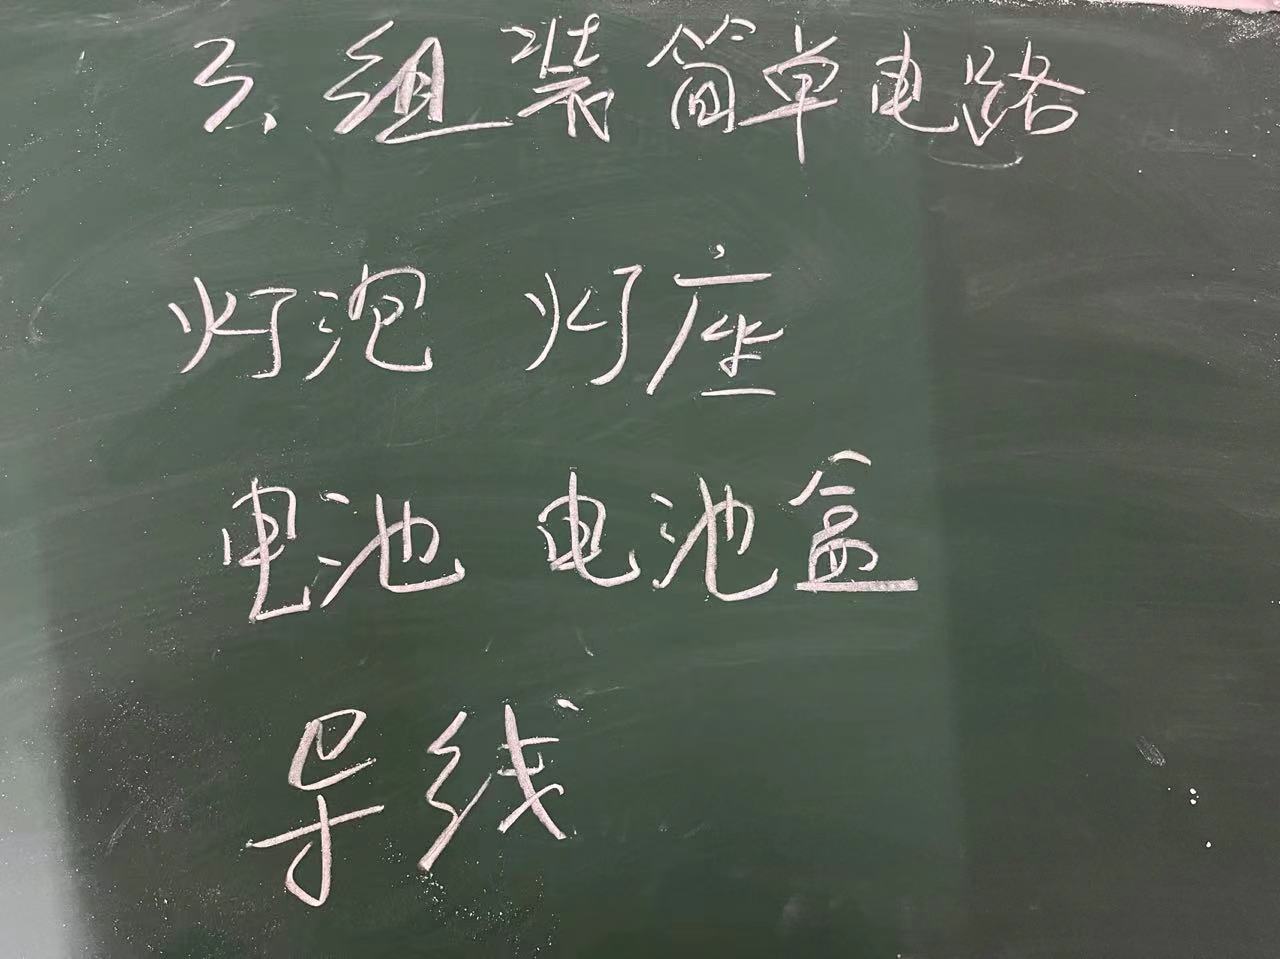 3、组装简单电路
灯泡 灯座
电池 电池盒
导线